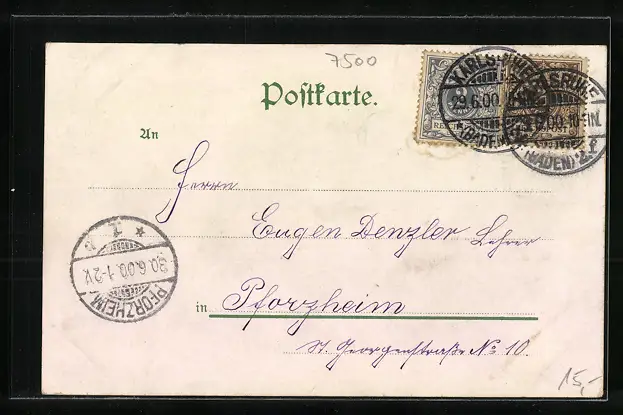 7500
Postkarte.
KARLSRUHE
29.6.00.
(BADEN)
KARLSRUHE
6.00. 10-11N.
(BADEN) 2.f
An
Herrn
Eugen Denzler Lehrer
30.6.00. 1-2V.
PFORZHEIM
in Pforzheim
St. Georgenstraße No 10.
15,-